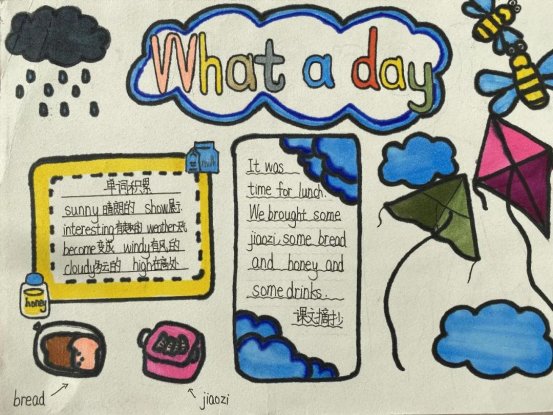 What a day
milk
单词积累
sunny 晴朗的 show展示
interesting有趣的 weather天气
become变成 windy有风的
cloudy多云的 high在高处
It was
time for lunch.
We brought some
jiaozi, some bread
and honey and
some drinks.
课文摘抄
honey
bread
jiaozi